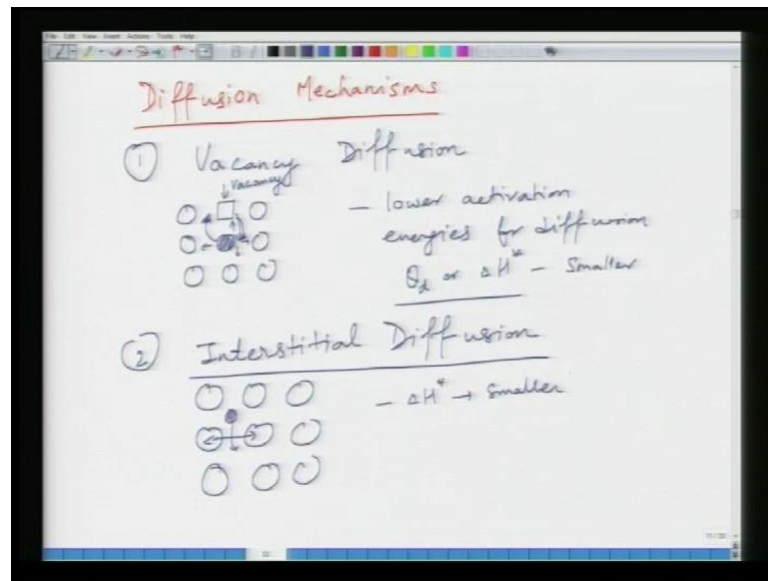 File Edit View Insert Actions Tools Help
Diffusion Mechanisms
① Vacancy Diffusion
Vacancy
- lower activation
energies for diffusion
Q_d or ΔH* - Smaller
② Interstitial Diffusion
- ΔH* → Smaller